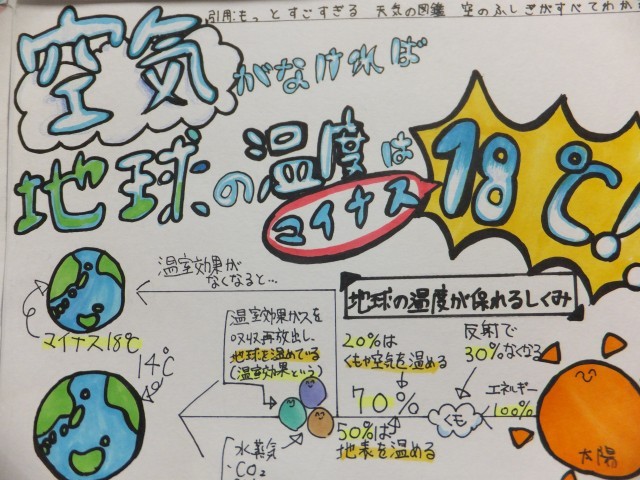 引用:もっとすごすぎる 天気の図鑑 空のふしぎがすべてわか
空気がなければ
地球の温度は
マイナス18℃!
温室効果が
なくなると…
地球の温度が保れるしくみ
マイナス18℃
14℃
温室効果ガスを
吸収再放出し、
地球を温めている
(温室効果という)
20%は
くもや空気を温める
反射で
30%なくなる
エネルギー
100%
70%
くも
50%は
地表を温める
水蒸気
CO₂
太陽